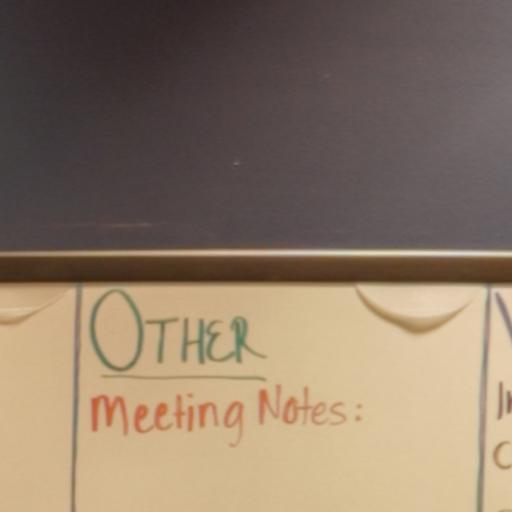 OTHER
Meeting Notes: